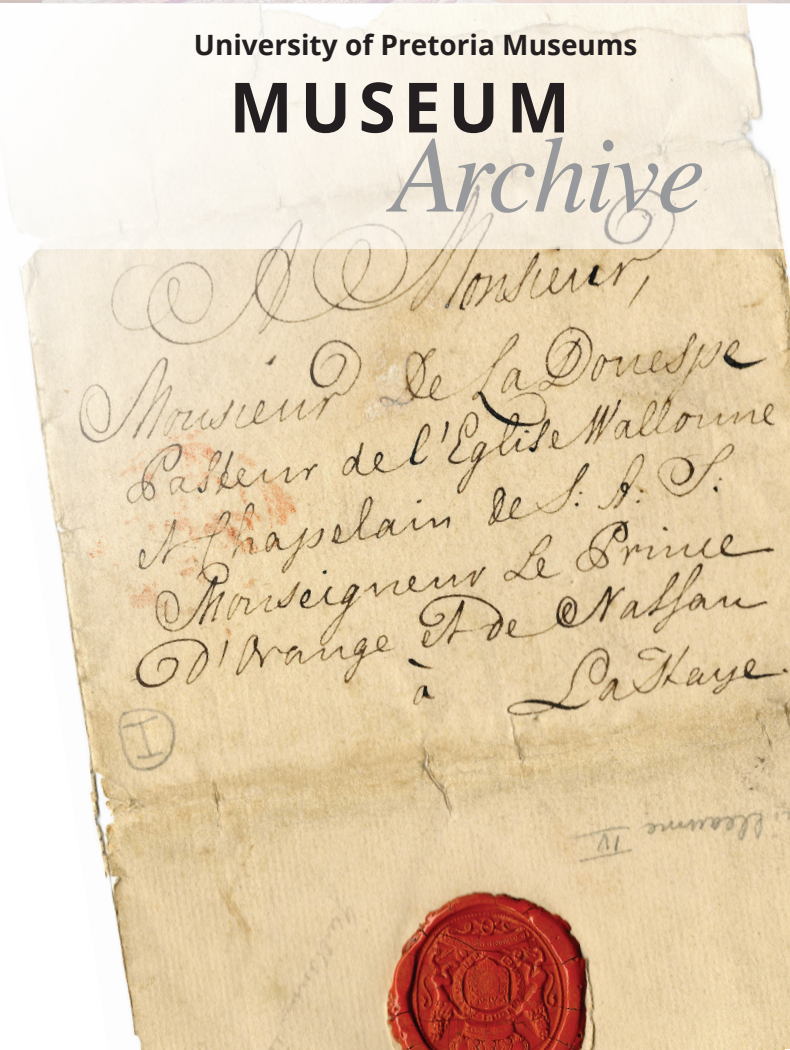 University of Pretoria Museums
MUSEUM
Archive
A Monsieur,
Monsieur De La Douespe
Pasteur de l'Eglise Wallonne
et Chapelain de S: A: S:
Monseigneur Le Prince
D'Orange et de Nassau
à La Haye.
I
IV